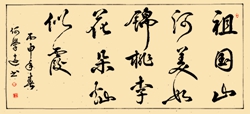 祖国山
河美如
锦桃李
花朵灿
似霞
丙申年春
何學书